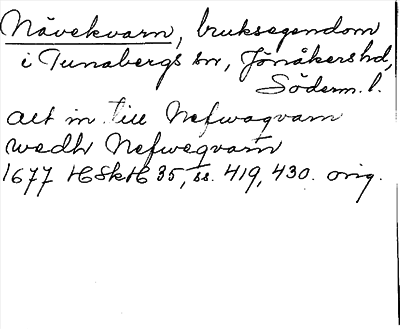 Nävekvarn, bruksegendom
i Tunabergs sn, Jönåkers hd,
Söderm. l.
alt in till Nefwaqvarn
wedh Nefweqvarn
1677 HSkH 35, ss. 419, 430. orig.